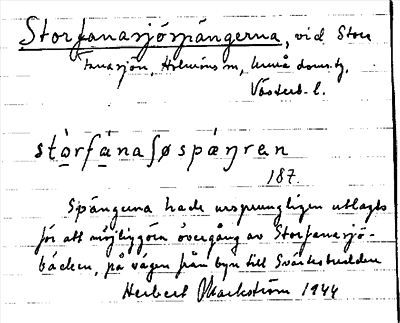 Storfanasjöspängerna, vid Stor
fanasjön, Holmöns sn, Umeå doms.tg,
Västerb. l.
stòrfánaʃøspæŋren
187.
Spängerna hade ursprungligen utlagts
för att möjliggöra övergång av Storfanasjö-
bäcken, på vägen från byn till
Herbert Markström 1944